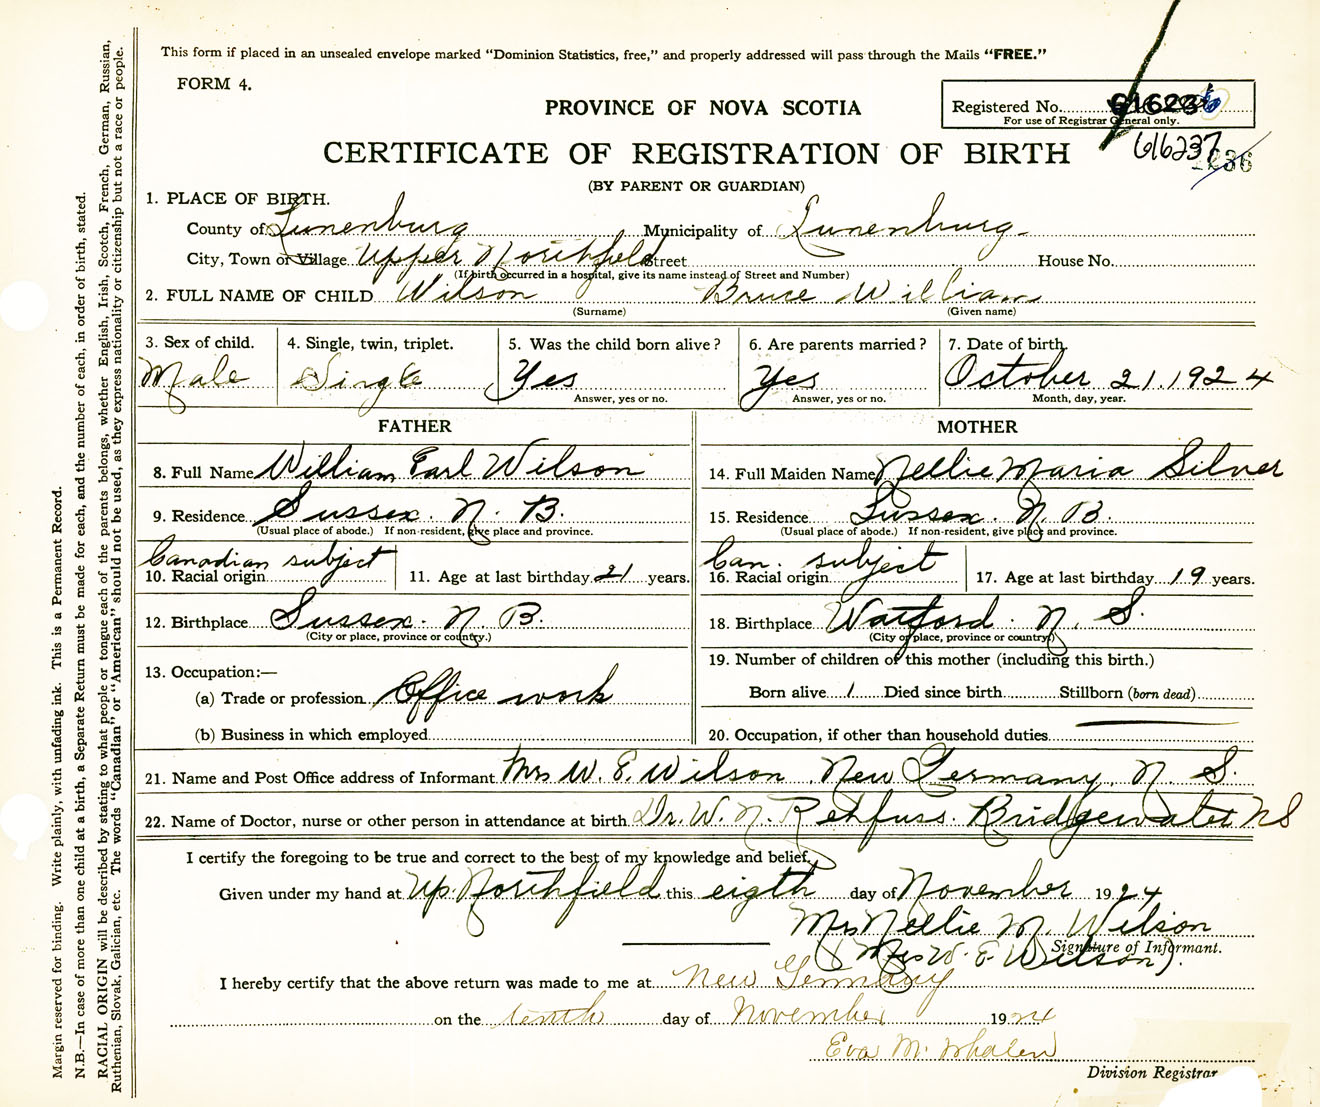 This form if placed in an unsealed envelope marked "Dominion Statistics, free," and properly addressed will pass through the Mails "FREE."
FORM 4.
PROVINCE OF NOVA SCOTIA
Registered No.
For use of Registrar General only.
616237
1236
CERTIFICATE OF REGISTRATION OF BIRTH
(BY PARENT OR GUARDIAN)
1. PLACE OF BIRTH.
County of Lunenburg Municipality of Lunenburg
City, Town or Village Upper Northfield Street House No.
(If birth occurred in a hospital, give its name instead of Street and Number)
2. FULL NAME OF CHILD Wilson Bruce William
(Surname) (Given name)
3. Sex of child. 4. Single, twin, triplet. 5. Was the child born alive? 6. Are parents married? 7. Date of birth.
Male Single Yes Yes October 21. 1924
Answer, yes or no. Answer, yes or no. Month, day, year.
FATHER MOTHER
8. Full Name William Earl Wilson 14. Full Maiden Name Nellie Maria Silver
9. Residence Sussex. N. B. 15. Residence Sussex. N. B.
(Usual place of abode.) If non-resident, give place and province. (Usual place of abode.) If non-resident, give place and province.
Canadian subject Can. subject
10. Racial origin 11. Age at last birthday 21 years. 16. Racial origin 17. Age at last birthday 19 years.
12. Birthplace Sussex. N. B. 18. Birthplace Watford. N. S.
(City or place, province or country.) (City or place, province or country.)
13. Occupation:— 19. Number of children of this mother (including this birth.)
(a) Trade or profession Office work Born alive 1 Died since birth Stillborn (born dead)
(b) Business in which employed 20. Occupation, if other than household duties.
21. Name and Post Office address of Informant Mrs W. E. Wilson. New Germany, N. S.
22. Name of Doctor, nurse or other person in attendance at birth Dr. W. N. Rehfuss. Bridgewater NS
I certify the foregoing to be true and correct to the best of my knowledge and belief.
Given under my hand at Up. Northfield this eigth day of November 1924
Mrs Nellie M. Wilson
Signature of Informant.
(Mrs W. E. Wilson).
I hereby certify that the above return was made to me at New Germany
on the tenth day of November 1924
Eva M. Whalen
Division Registrar
Margin reserved for binding. Write plainly, with unfading ink. This is a Permanent Record.
N.B.—In case of more than one child at a birth, a Separate Return must be made for each, and the number of each, in order of birth, stated.
RACIAL ORIGIN will be described by stating to what people or tongue each of the parents belongs, whether English, Irish, Scotch, French, German, Russian,
Ruthenian, Slovak, Galician, etc. The words "Canadian" or "American" should not be used, as they express nationality or citizenship but not a race or people.